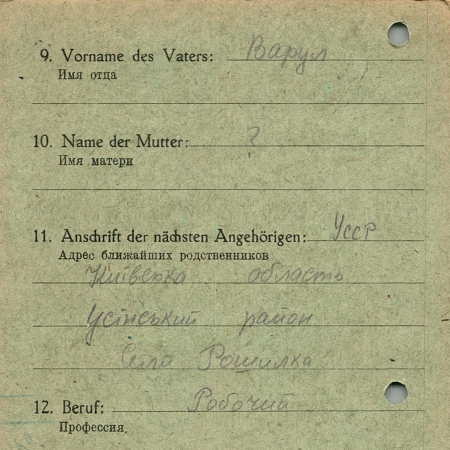 9. Vorname des Vaters: Варул
Имя отца
10. Name der Mutter: ?
Имя матери
11. Anschrift der nächsten Angehörigen: УССР
Адрес ближайших родственников
Київська область
Усінський район
Села Рошилка
12. Beruf: Робочий
Профессия